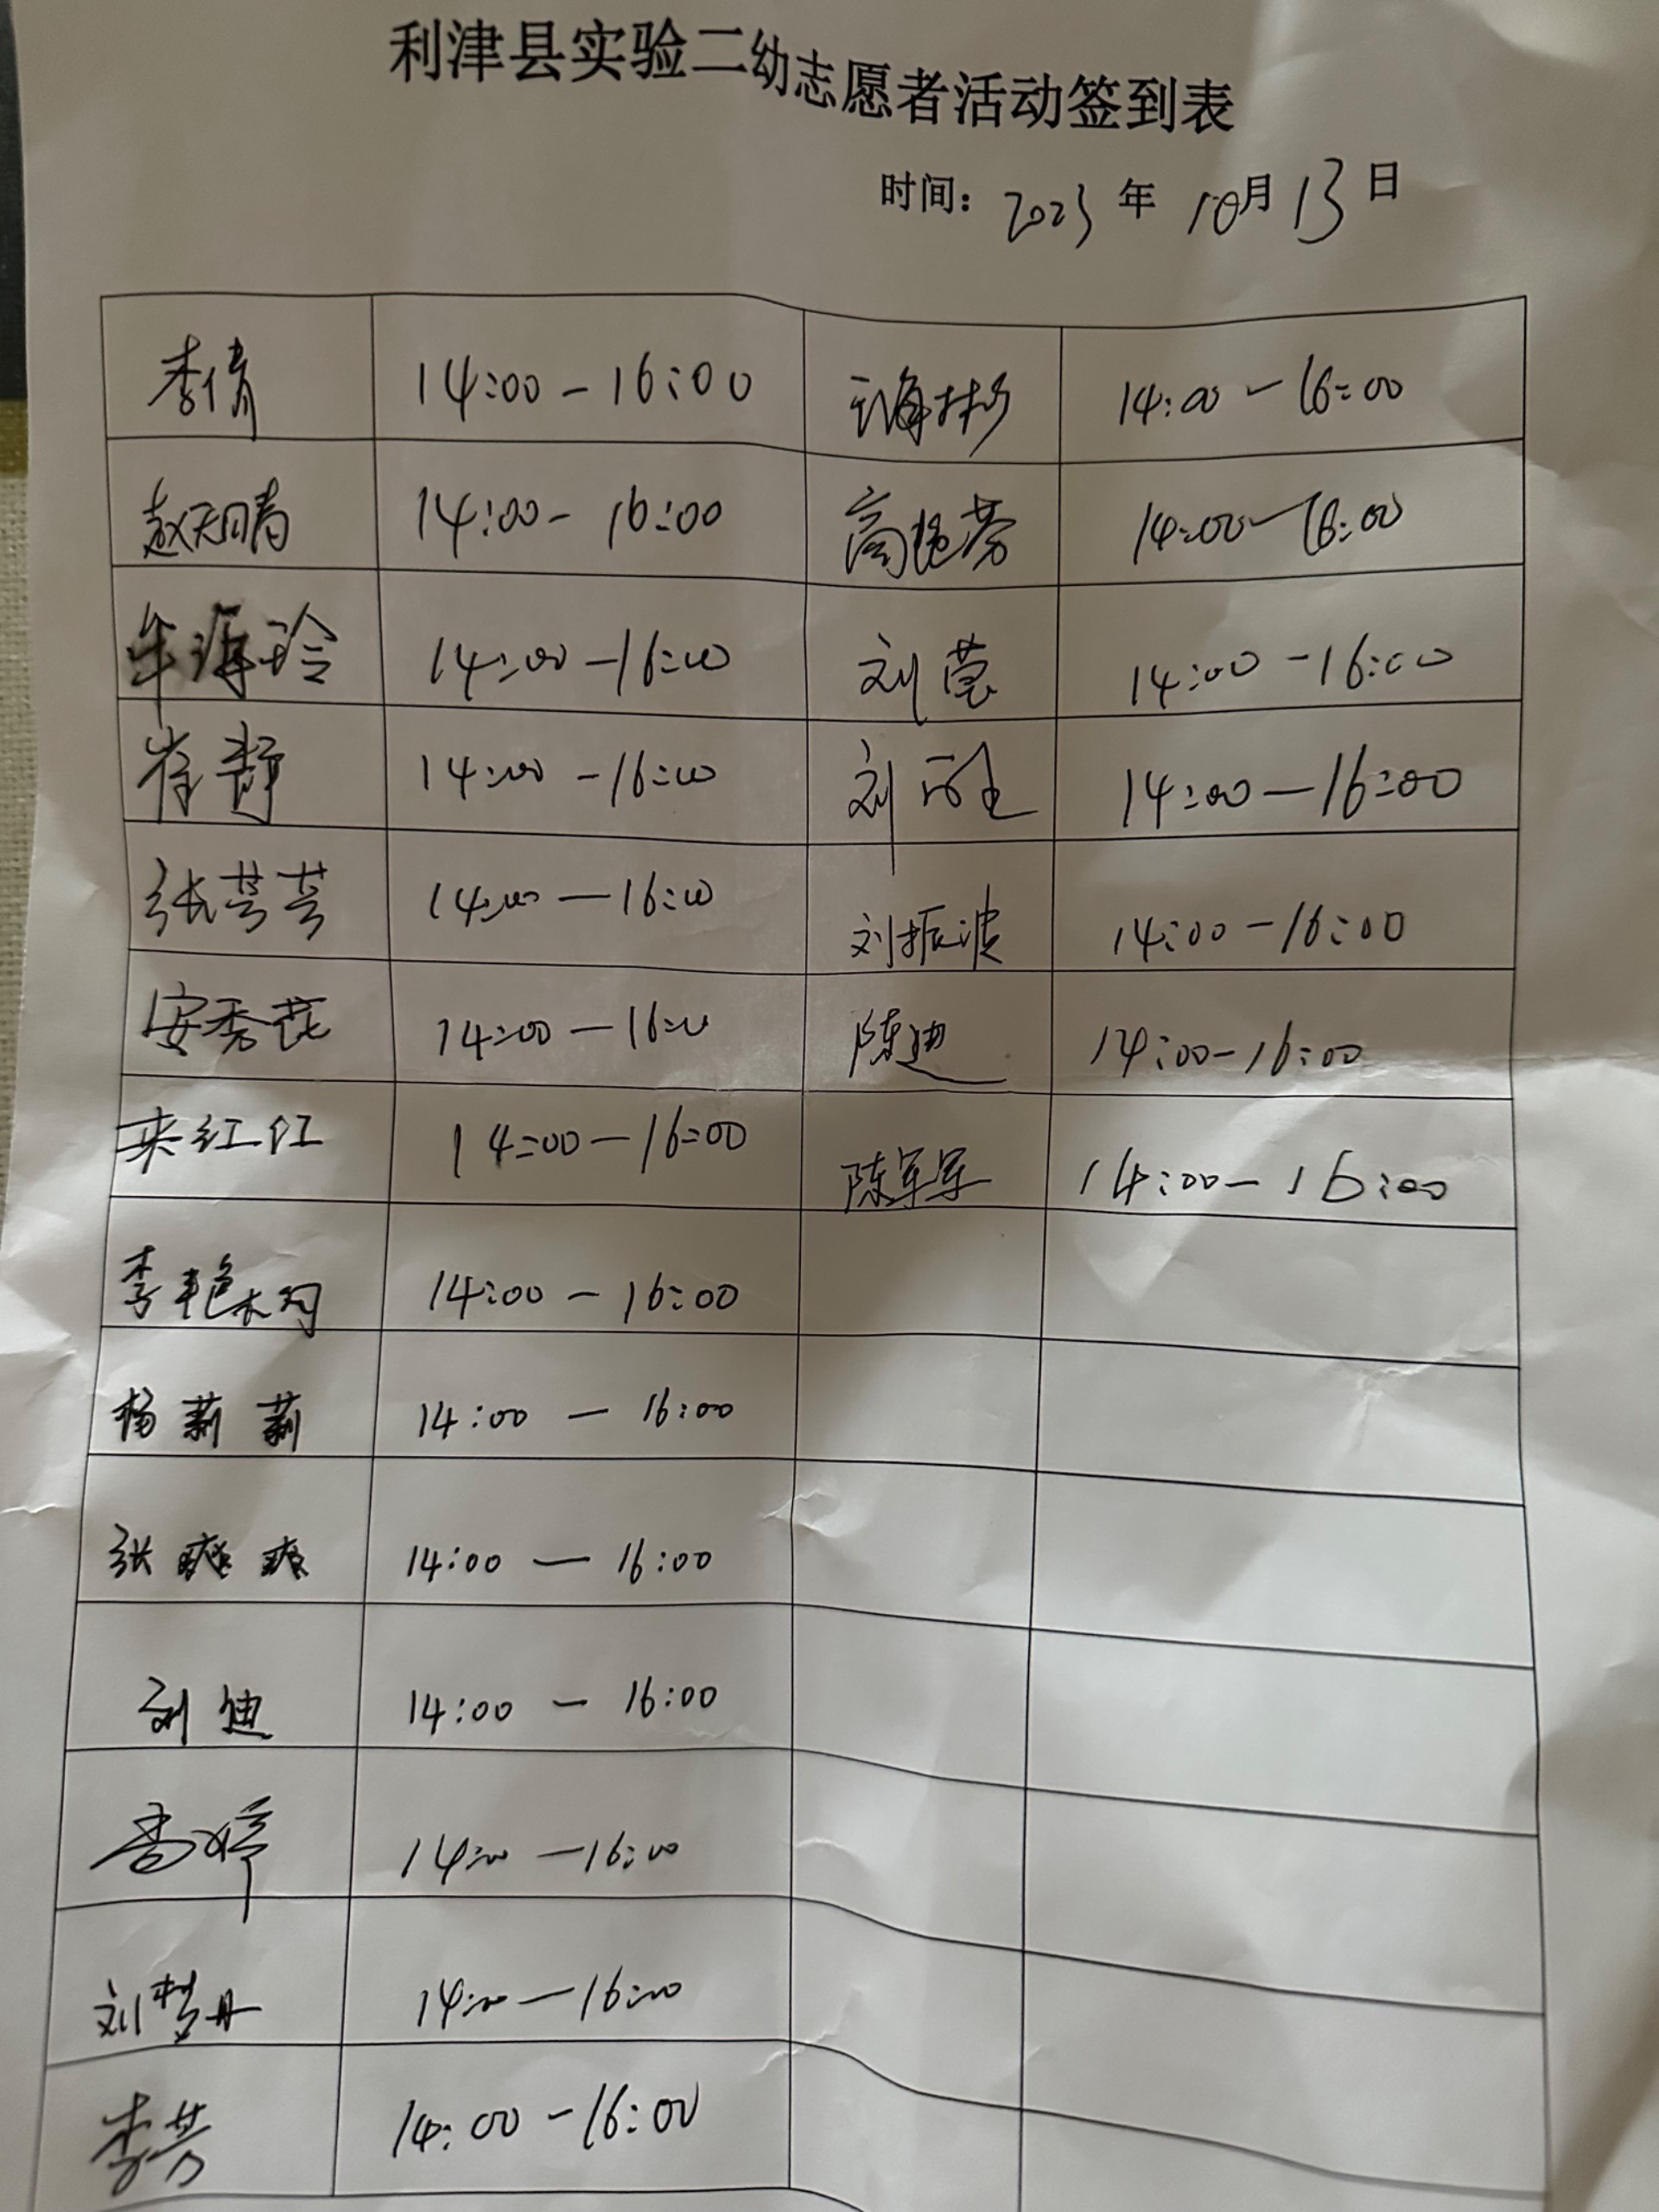 利津县实验二幼志愿者活动签到表
时间: 2023 年 10月 13 日
李倩 14:00-16:00 14:00-16:00
赵天晴 14:00-16:00 高艳芳 14:00-16:00
牟海玲 14:00-16:00 刘莹 14:00-16:00
崔静 14:00-16:00 刘 14:00-16:00
张芸芸 14:00-16:00 刘振波 14:00-16:00
安秀花 14:00-16:00 陈迪 14:00-16:00
宋红红 14:00-16:00 陈军军 14:00-16:00
李艳 14:00-16:00
杨莉莉 14:00-16:00
张爽爽 14:00-16:00
刘迪 14:00-16:00
高婷 14:00-16:00
刘梦丹 14:00-16:00
李芳 14:00-16:00